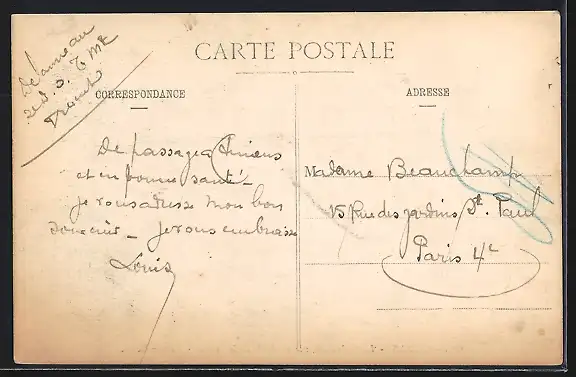 CARTE POSTALE
CORRESPONDANCE
De passage a Amiens
et en bonne santé -
je vous adresse mon bon
souvenir - je vous embrasse
Louis
ADRESSE
Madame Beauchamp
15 Rue des jardins St. Paul
Paris 4e